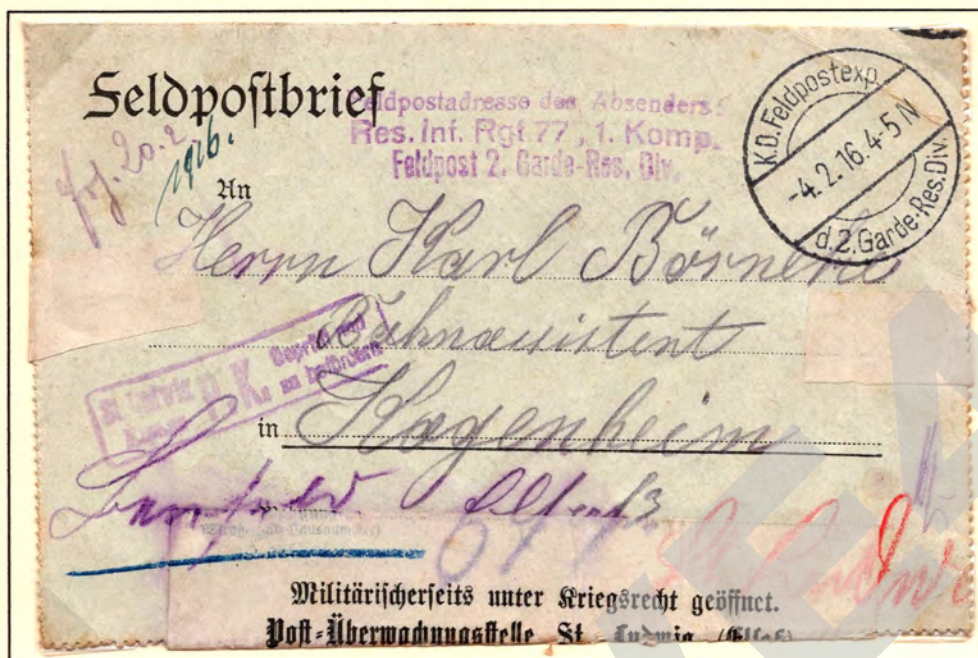 Feldpostbrief
Feldpostadresse des Absenders:
Res. Inf. Rgt 77, 1. Komp.
Feldpost 2. Garde-Res. Div.
K.D. Feldpostexp.
-4.2.16. 4-5 N
d. 2. Garde-Res. Div.
20. 2.
1916.
An
Herrn Karl Börnert
Bahnassistent
Geprüft und
zu befördern
in Hagenheim
Elsaß
Militärischerseits unter Kriegsrecht geöffnet.
Post-Überwachungsstelle St. Ludwig (Elsaß)